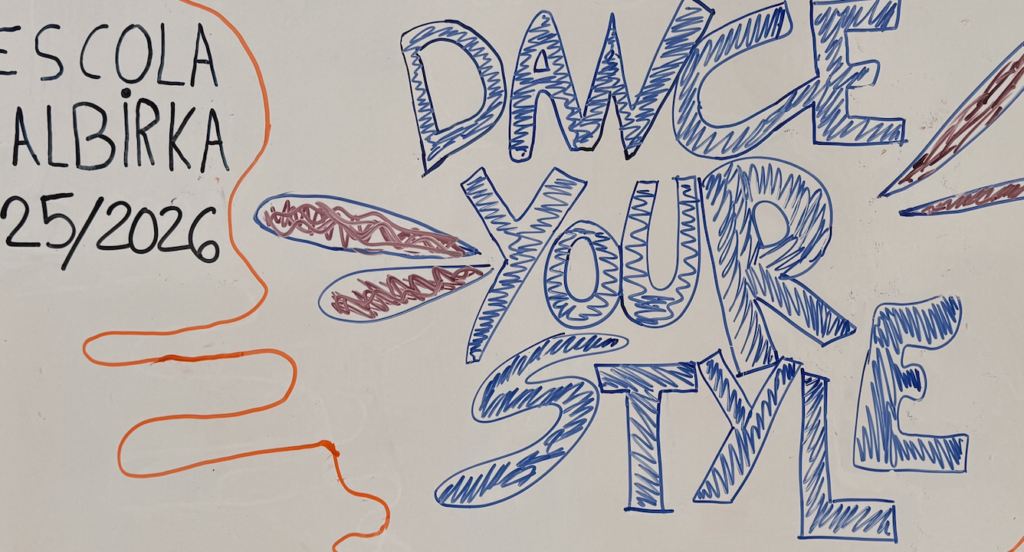 ESCOLA
ALBIRKA
25/2026
DANCE
YOUR
STYLE